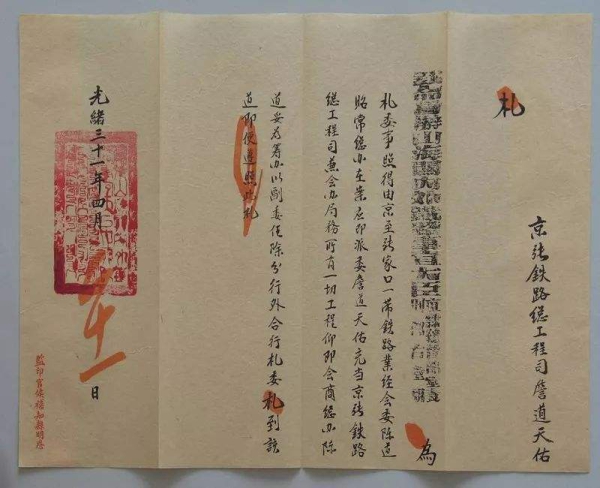 札
京張鐵路總工程司詹道天佑
為
札委事照得由京至張家口一帶鐵路業經會委陳道
昭常總办在案應即派委詹道天佑充當京張鐵路
總工程司兼會办局務所有一切工程仰即會商總办陳
道妥為籌办以副委任除分行外合行札委札到該
道即便遵照此札
光緒三十一年四月 日
監印官候補知縣明